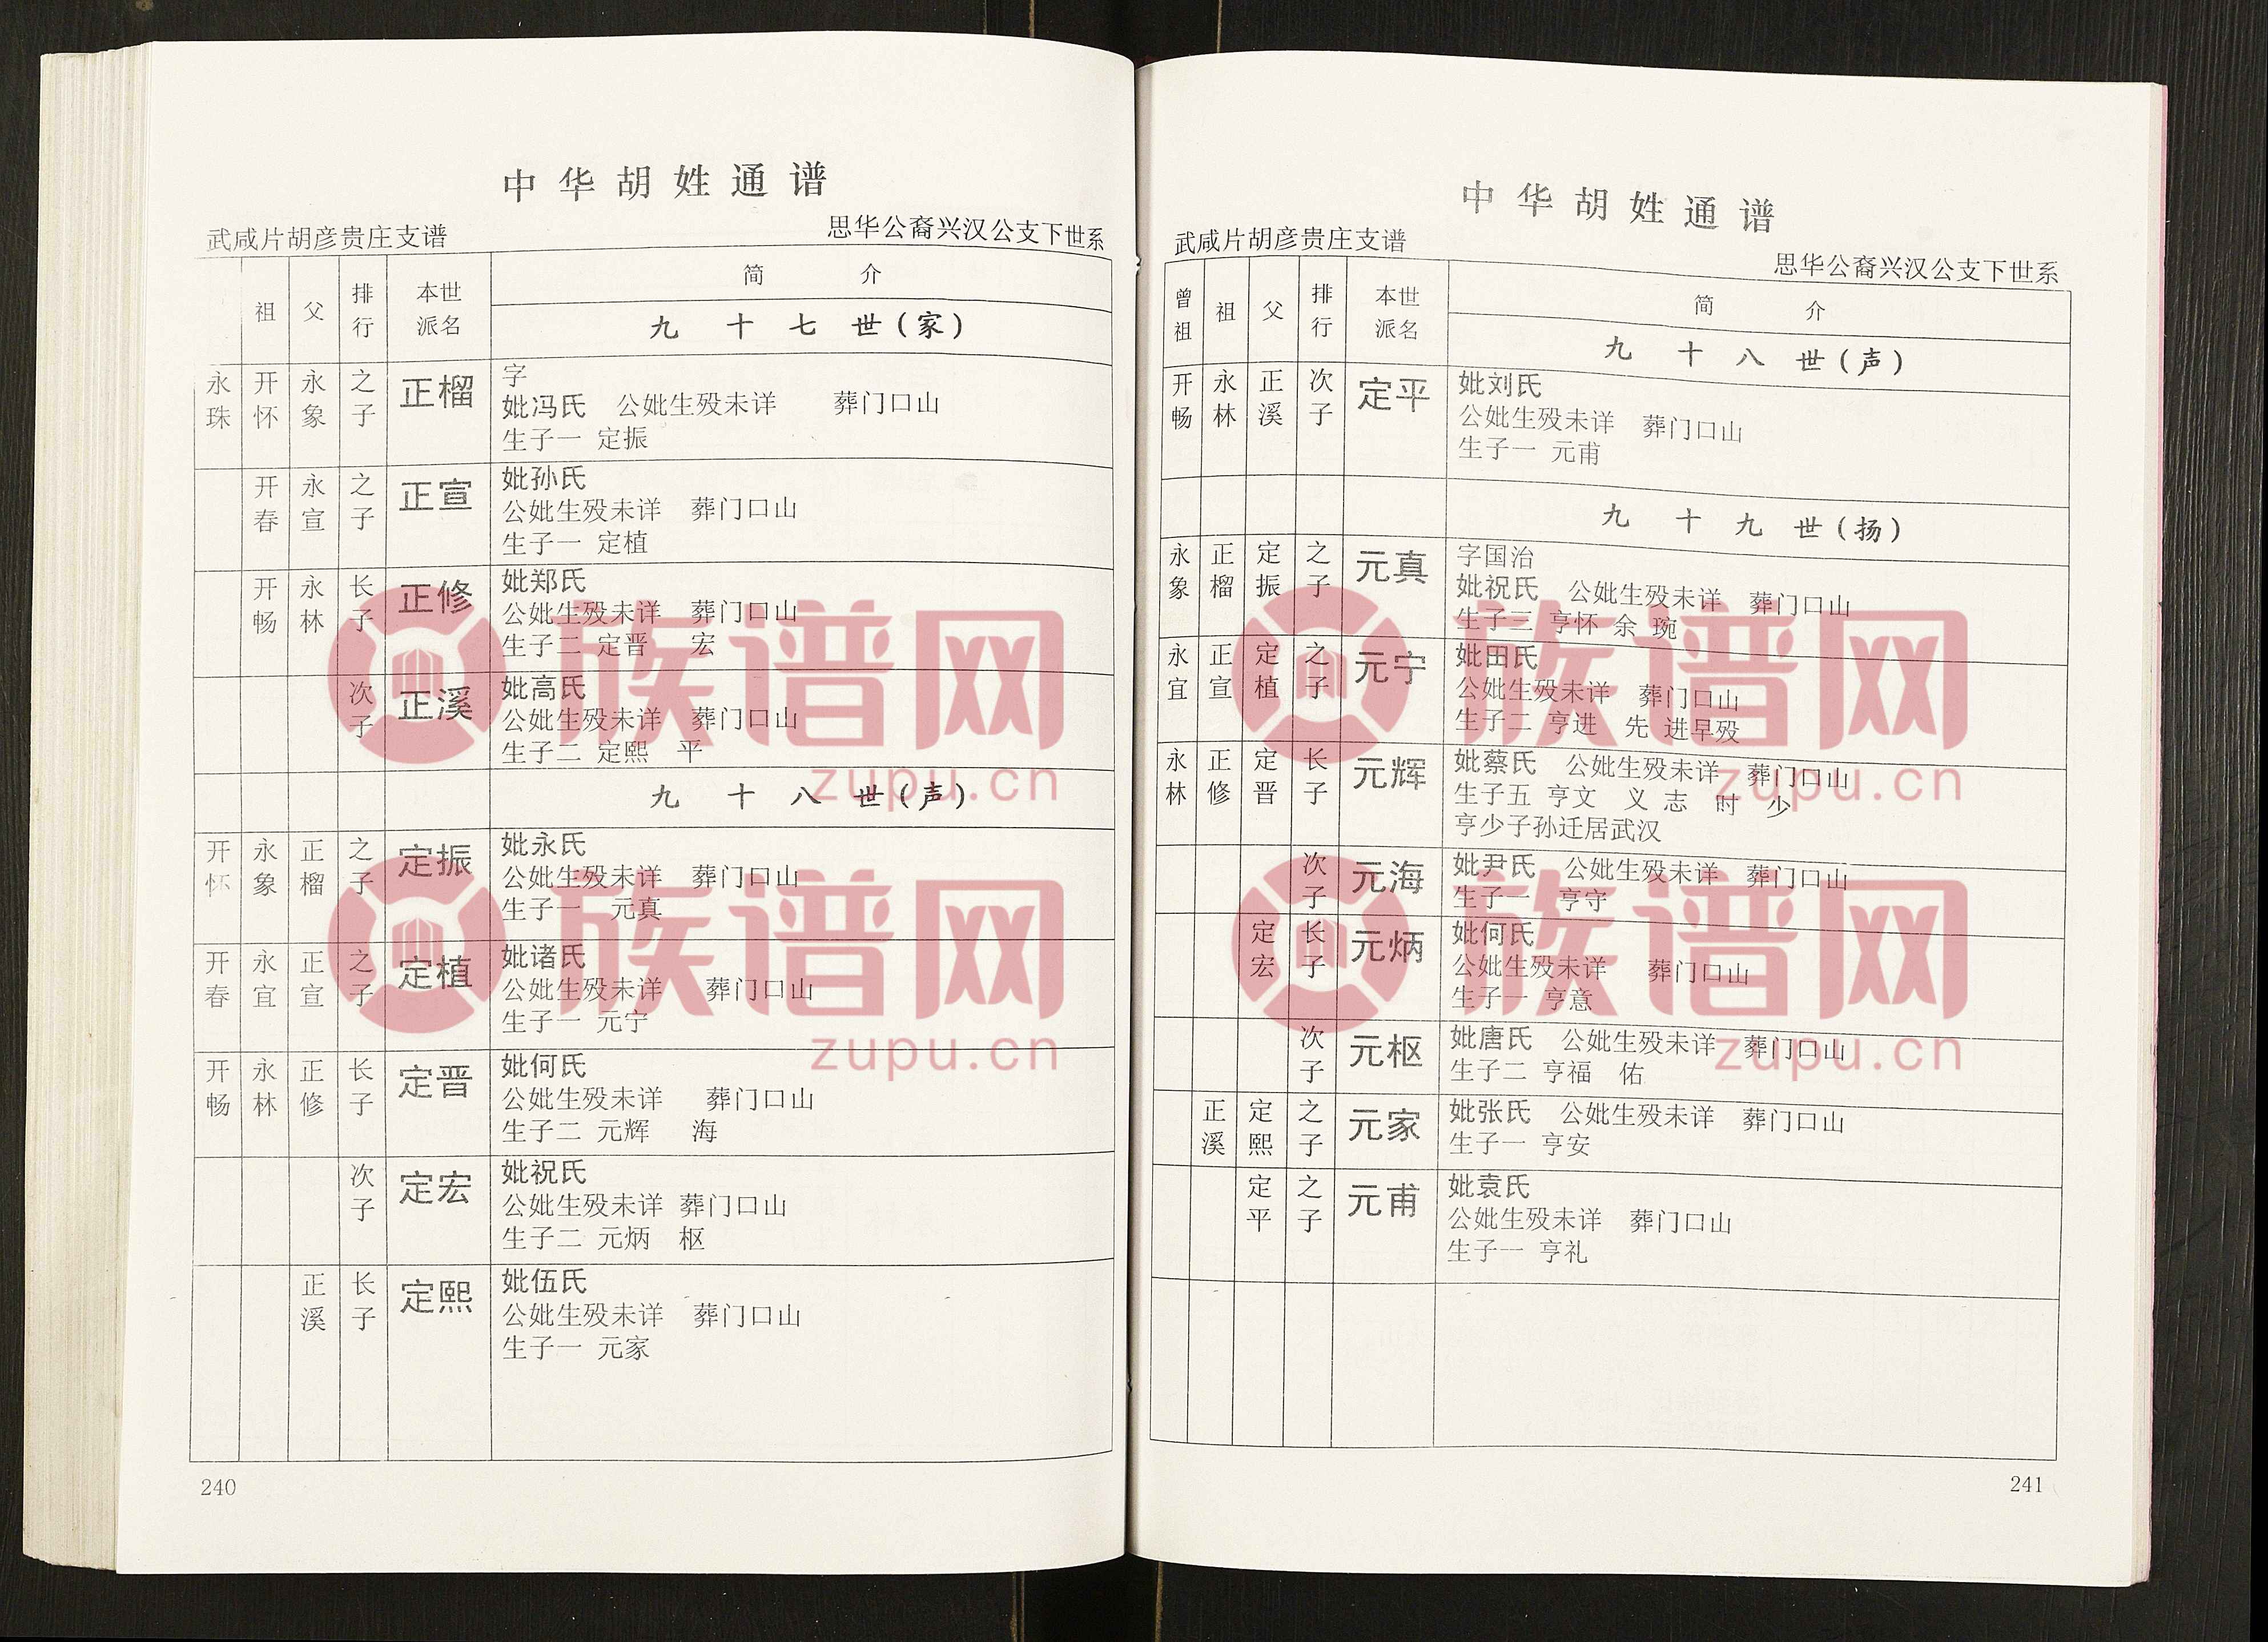 中华胡姓通谱
武咸片胡彦贵庄支谱 思华公裔兴汉公支下世系
祖 父 排行 本世派名 简介
九十七世(家)
永珠 开怀 永象 之子 正榴 字
妣冯氏 公妣生殁未详 葬门口山
生子一 定振
开春 永宣 之子 正宣 妣孙氏
公妣生殁未详 葬门口山
生子一 定植
开畅 永林 长子 正修 妣郑氏
公妣生殁未详 葬门口山
生子二 定晋 宏
次子 正溪 妣高氏
公妣生殁未详 葬门口山
生子二 定熙 平
九十八世(声)
开怀 永象 正榴 之子 定振 妣永氏
公妣生殁未详 葬门口山
生子一 元真
开春 永宜 正宣 之子 定植 妣诸氏
公妣生殁未详 葬门口山
生子一 元宁
开畅 永林 正修 长子 定晋 妣何氏
公妣生殁未详 葬门口山
生子二 元辉 海
次子 定宏 妣祝氏
公妣生殁未详 葬门口山
生子二 元炳 枢
正溪 长子 定熙 妣伍氏
公妣生殁未详 葬门口山
生子一 元家
240
中华胡姓通谱
武咸片胡彦贵庄支谱 思华公裔兴汉公支下世系
曾祖 祖 父 排行 本世派名 简介
九十八世(声)
开畅 永林 正溪 次子 定平 妣刘氏
公妣生殁未详 葬门口山
生子一 元甫
九十九世(扬)
永象 正榴 定振 之子 元真 字国治
妣祝氏 公妣生殁未详 葬门口山
生子三 亨怀 余 琬
永宜 正宣 定植 之子 元宁 妣田氏
公妣生殁未详 葬门口山
生子二 亨进 先 进早殁
永林 正修 定晋 长子 元辉 妣蔡氏 公妣生殁未详 葬门口山
生子五 亨文 义 志 时 少
亨少子孙迁居武汉
次子 元海 妣尹氏 公妣生殁未详 葬门口山
生子一 亨守
定宏 长子 元炳 妣何氏
公妣生殁未详 葬门口山
生子一 亨意
次子 元枢 妣唐氏 公妣生殁未详 葬门口山
生子二 亨福 佑
正溪 定熙 之子 元家 妣张氏 公妣生殁未详 葬门口山
生子一 亨安
定平 之子 元甫 妣袁氏
公妣生殁未详 葬门口山
生子一 亨礼
241
族谱网
zupu.cn
族谱网
zupu.cn
族谱网
zupu.cn
族谱网
zupu.cn